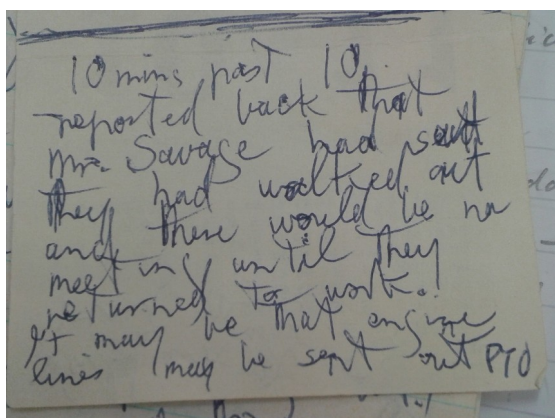 10 mins past 10
reported back that
Mr. Savage had said
they had walked out
and there would be no
meeting until they
returned to work.
It may be that engine
lines may be sent out PTO